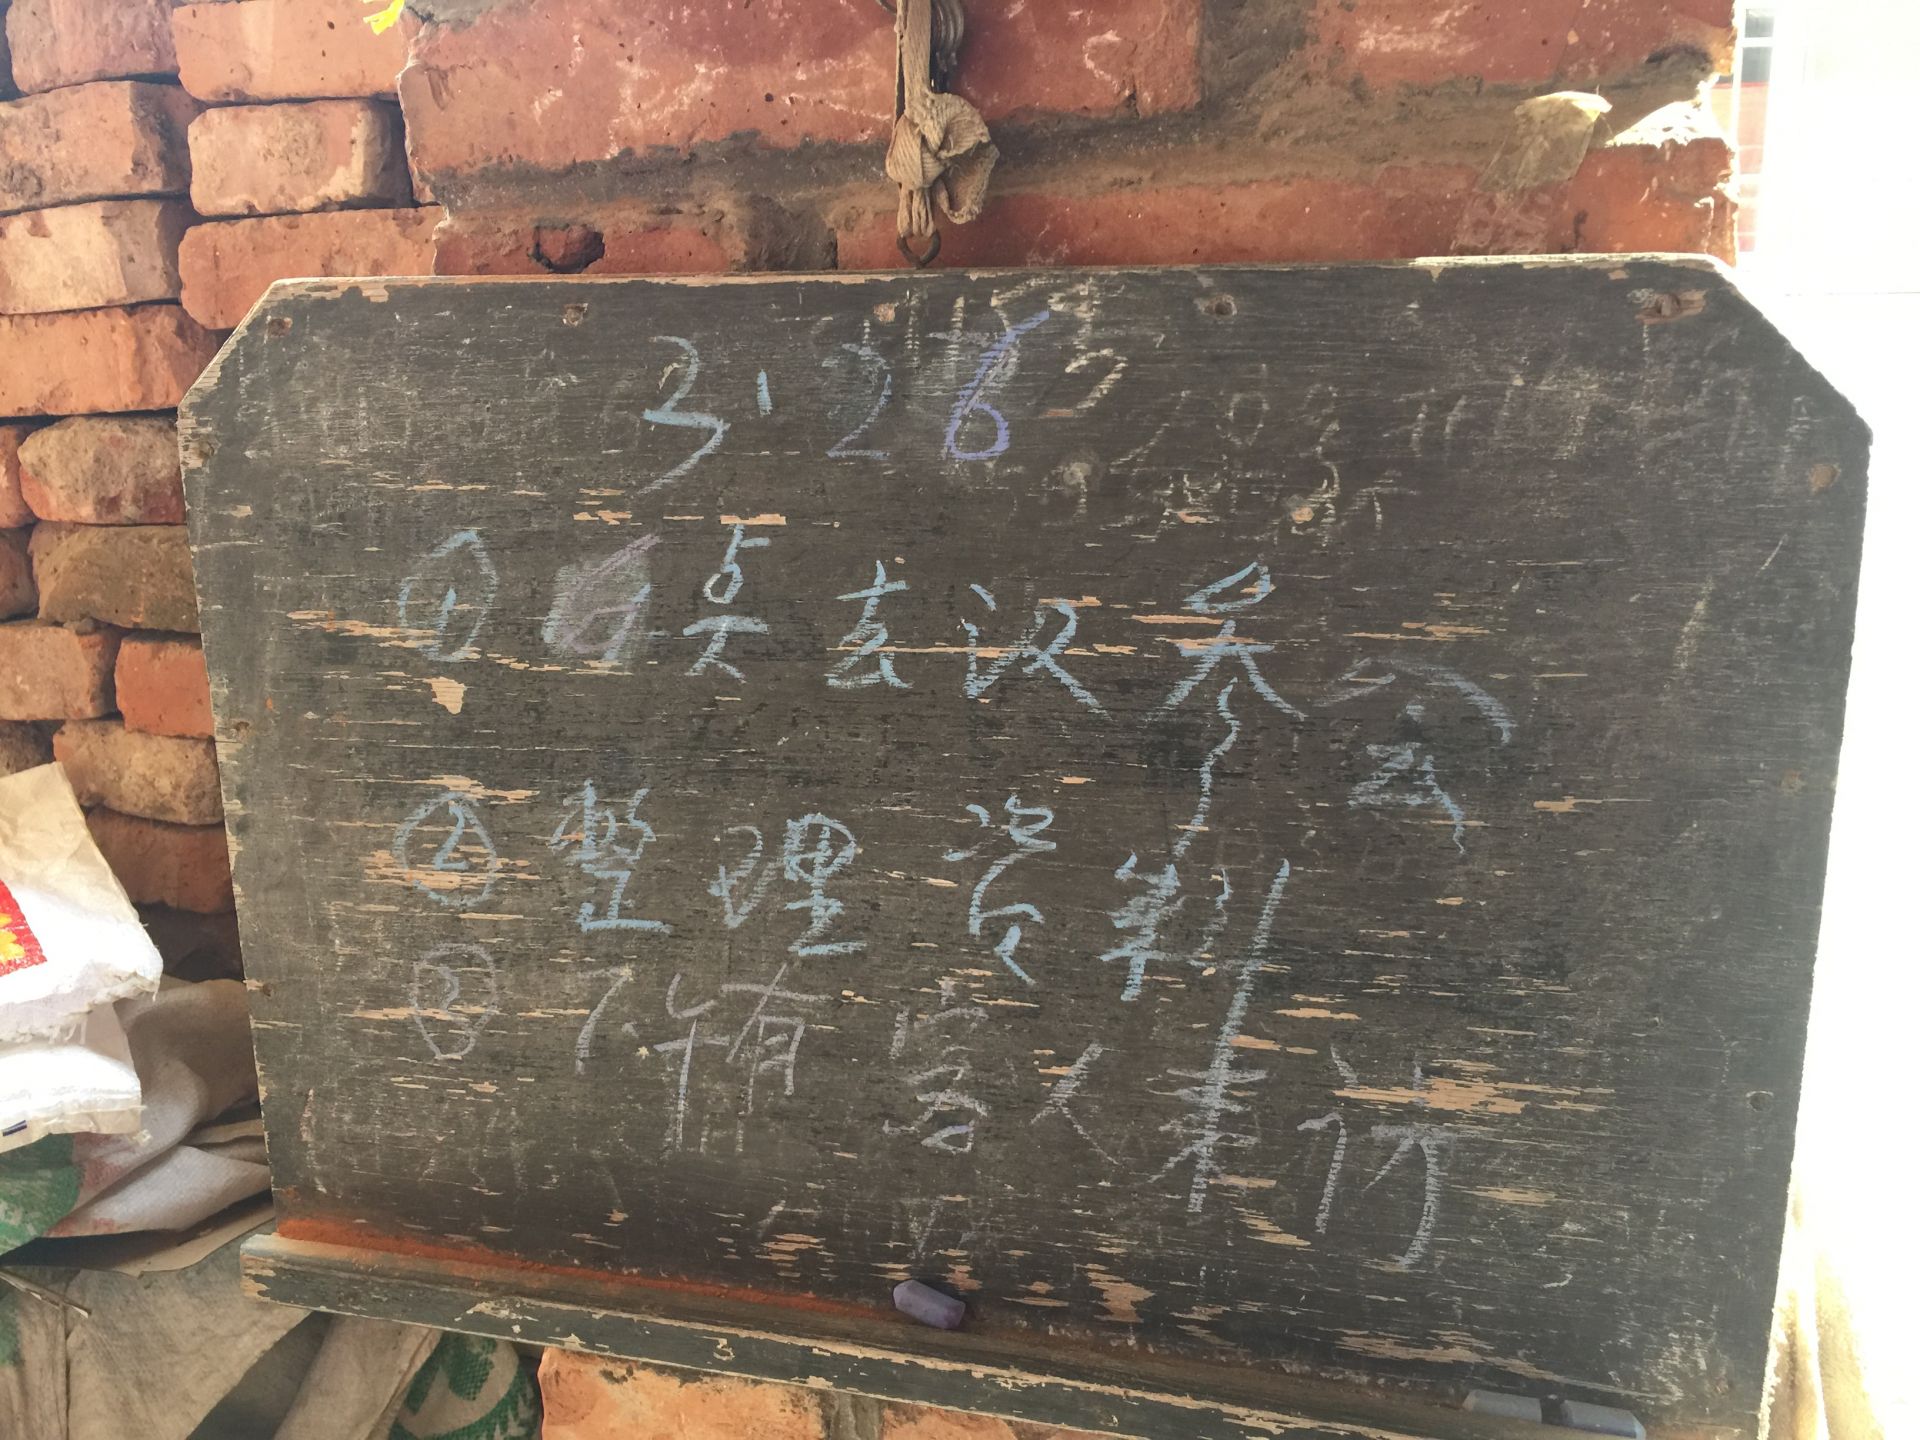 3.26
① 6点去议参会
② 整理资料
③ 下午有客人来访